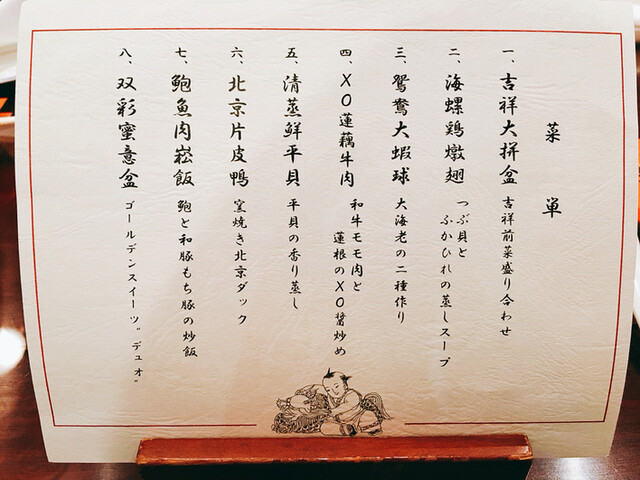 菜単
一、吉祥大拼盆 吉祥前菜盛り合わせ
二、海螺鶏燉翅 つぶ貝と
ふかひれの蒸しスープ
三、鴛鴦大蝦球 大海老の二種作り
四、XO蓮藕牛肉 和牛モモ肉と
蓮根のXO醤炒め
五、清蒸鮮平貝 平貝の香り蒸し
六、北京片皮鴨 窯焼き北京ダック
七、鮑魚肉崧飯 鮑と和豚もち豚の炒飯
八、双彩蜜意盆 ゴールデンスイーツ"デュオ"